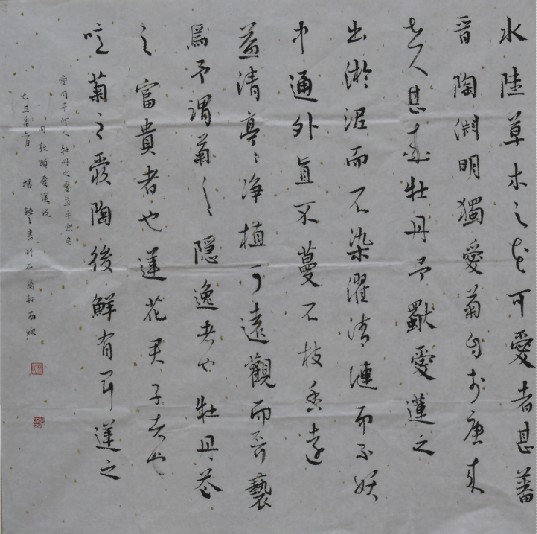 水陸草木之花可愛者甚蕃
晉陶淵明獨愛菊自李唐來
世人甚愛牡丹予獨愛蓮之
出淤泥而不染濯清漣而不妖
中通外直不蔓不枝香遠
益清亭々淨植可遠觀而不可褻
焉予謂菊之隱逸者也牡丹花
之富貴者也蓮花君子者也
噫菊之愛陶後鮮有聞蓮之
愛同予何人牡丹之愛宜乎眾矣
周敦頤愛蓮說